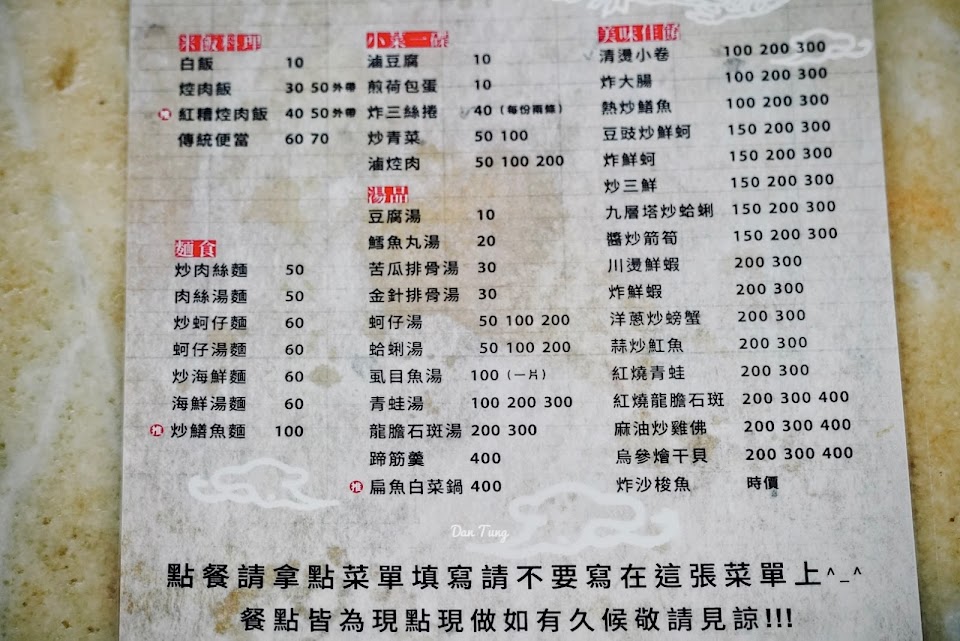 米飯料理
白飯 10
焢肉飯 30 50外帶
推 紅糟焢肉飯 40 50外帶
傳統便當 60 70
麵食
炒肉絲麵 50
肉絲湯麵 50
炒蚵仔麵 60
蚵仔湯麵 60
炒海鮮麵 60
海鮮湯麵 60
推 炒鱔魚麵 100
小菜一碟
滷豆腐 10
煎荷包蛋 10
炸三絲捲 40(每份兩條)
炒青菜 50 100
滷焢肉 50 100 200
湯品
豆腐湯 10
鱈魚丸湯 20
苦瓜排骨湯 30
金針排骨湯 30
蚵仔湯 50 100 200
蛤蜊湯 50 100 200
虱目魚湯 100(一片)
青蛙湯 100 200 300
龍膽石斑湯 200 300
蹄筋羹 400
推 扁魚白菜鍋 400
美味佳餚
清燙小卷 100 200 300
炸大腸 100 200 300
熱炒鱔魚 100 200 300
豆豉炒鮮蚵 150 200 300
炸鮮蚵 150 200 300
炒三鮮 150 200 300
九層塔炒蛤蜊 150 200 300
醬炒箭筍 150 200 300
川燙鮮蝦 200 300
炸鮮蝦 200 300
洋蔥炒螃蟹 200 300
蒜炒魟魚 200 300
紅燒青蛙 200 300
紅燒龍膽石斑 200 300 400
麻油炒雞佛 200 300 400
烏參燴干貝 200 300 400
炸沙梭魚 時價
Dan Tung
點餐請拿點菜單填寫請不要寫在這張菜單上^_^
餐點皆為現點現做如有久候敬請見諒!!!